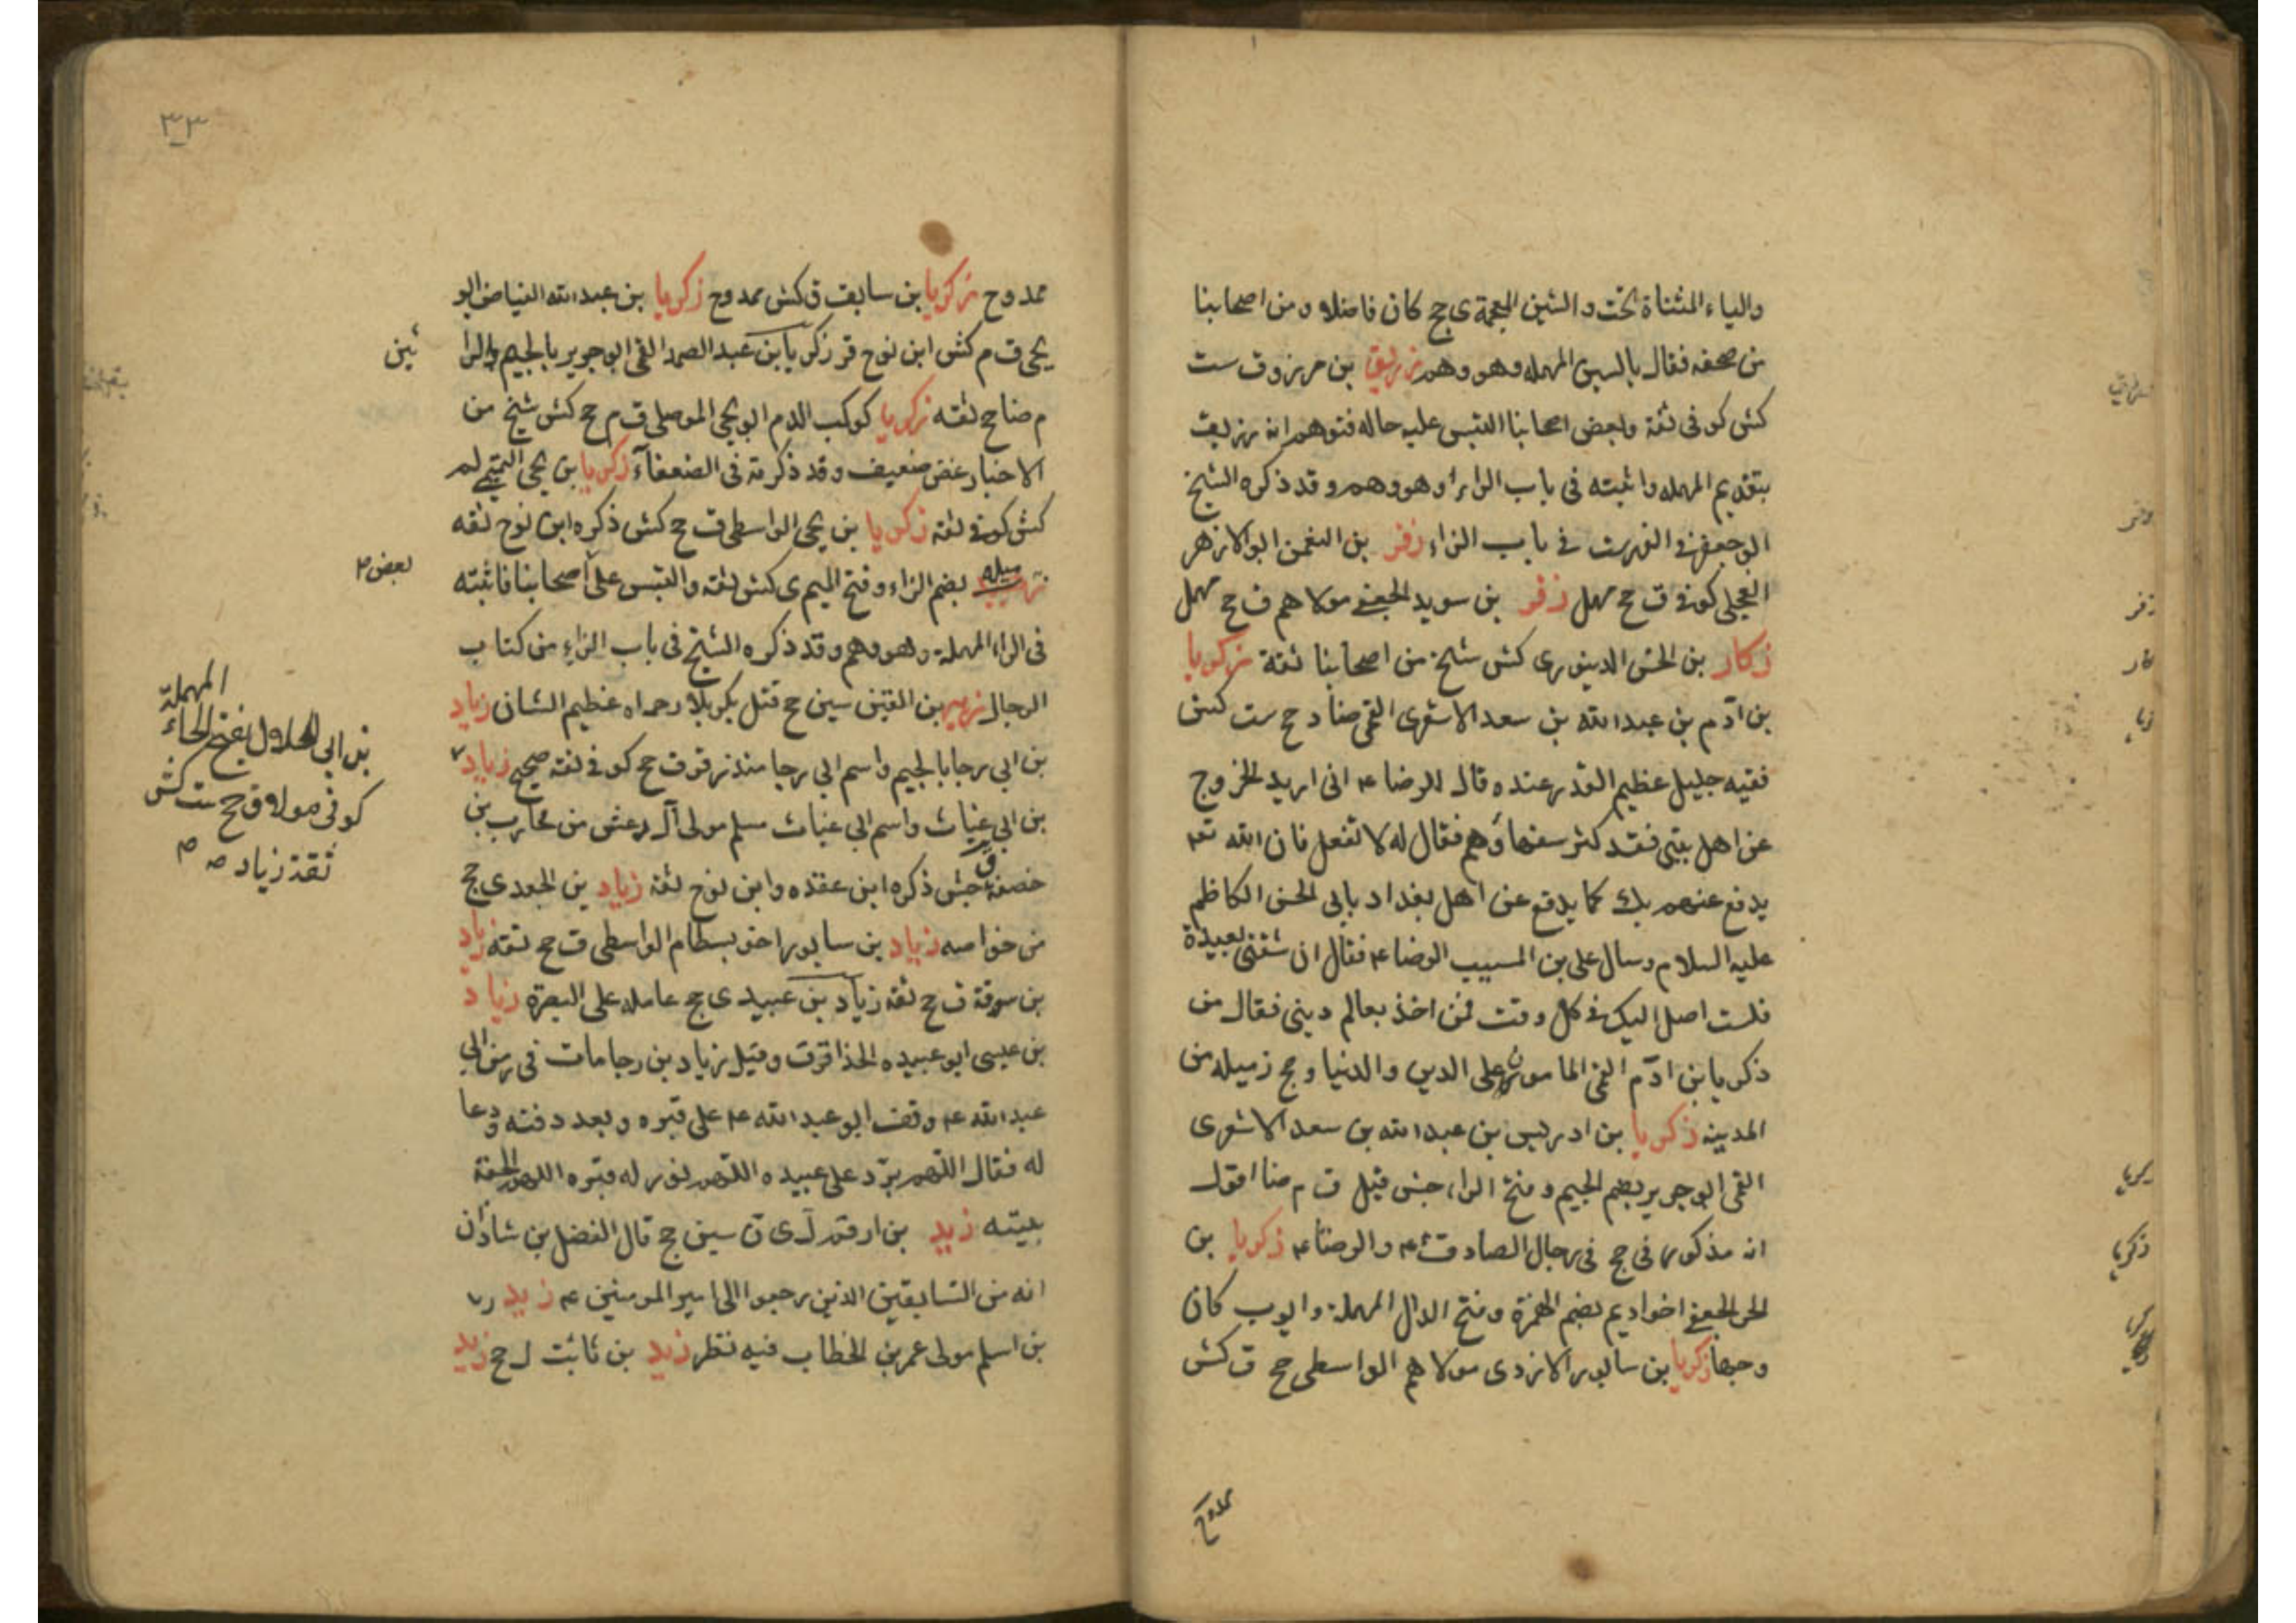 والياء المثناة تحت والشين المعجمة ى جح كان فاضلا و من اصحابنا
من صحفه فقال بالسين المهمله وهو وهم زريق بن مرزوق ست
كش كوفى ثقة وبعض اصحابنا التبس عليه حاله فتوهم انه رزيق
بتقديم المهمله واثبته فى باب الراء وهو وهم وقد ذكره الشيخ
ابو جعفر فى الفهرست فى باب الزاء زفر بن النعمن ابو الازهر
العجلى كوفى ق جح مهمل زفر بن سويد الجعفى مولاهم ق جح مهمل
زكار بن الحسن الدينورى كش شيخ من اصحابنا ثقة زكريا
بن آدم بن عبدالله بن سعد الاشعرى القمى ضا د جح ست كش
فقيه جليل عظيم القدر عنده قال للرضا ء انى اريد الخروج
عن اهل بيتى فقد كثر سفهاؤهم فقال له لا تفعل فان الله تعه
يدفع عنهم بك كما يدفع عن اهل بغداد بابى الحسن الكاظم
عليه السلام وسال على بن المسيب الرضا ء فقال ان شقتى بعيدة
فلست اصل اليك فى كل وقت فمن اخذ معالم دينى فقال من
زكريا بن آدم القمى المامون على الدين والدنيا و حج زميله من
المدينه زكريا بن ادريس بن عبدالله بن سعد الاشعرى
القمى ابو جرير بضم الجيم وفتح الراء جش قيل ق م ضا اقول
انه مذكور فى جح فى رجال الصادق ء والرضا ء زكريا بن
الحر الجعفى اخو اديم بضم الهمزة وفتح الدال المهملة وايوب كان
وجها زكريا بن سابور الازدى مولاهم الواسطى جح ق كش
ممدوح
زفر
زكريا
٣٣
ممدوح زكريا بن سابق ق كش ممدوح زكريا بن عبدالله الفياض ابو
يحيى ق م كش ابن نوح قر زكريا بن عبد الصمد القمى ابو جرير بالجيم والرا
ئين
م ضا جح ثقه زكريا كوكب الدم ابو يحيى الموصلى ق م جح كش شيخ من
الاخيار غض ضعيف وقد ذكرته فى الضعفآء زكريا بن يحيى التميمى لم
كش كوفى ثقه زكريا بن يحيى الواسطى ق جح كش ذكره ابن نوح ثقه
بضم الزاء وفتح الميم ى كش ثقه والتبس على اصحابنا فاثبته
بعض
فى الراء المهملة وهو وهم وقد ذكره الشيخ فى باب الزاء من كتاب
الرجال زهير بن القين سين جح قتل بكربلا رحمه اه عظيم الشان زياد
بن ابى رجا بالجيم واسم ابى رجا منذر قر ق جح كوفى ثقه صحيح زياد
بن ابى غياث واسم ابى غياث مسلم مولى آل دغش من محارب بن
خصفة ق جش ذكره ابن عقده وابن نوح ثقه زياد بن الجعد ى جح
من خواصه زياد بن سابور اخو بسطام الواسطى ق جح ثقه زياد
بن سوقة ق جح ثقه زياد بن عبيد ى جح عامله على البصرة زياد
بن عيسى ابو عبيده الحذا قر ق وقيل زياد بن رجا مات فى زمن ابى
عبدالله ء وقف ابو عبدالله ء على قبره و بعد دفنه ودعا
له فقال اللهم برّد على عبيده اللهم نور له قبره اللهم الحقه
بنبيه زيد بن ارقم ل ى ن سين جح قال الفضل بن شاذان
انه من السابقين الذين رجعوا الى امير المومنين ء زيد
بن اسلم مولى عمر بن الخطاب فيه نظر زيد بن ثابت ل جح زيد
المهملة
بن ابى الحلال بفتح الحاء
كوفى مولا ق جح ست كش
ثقة زياد